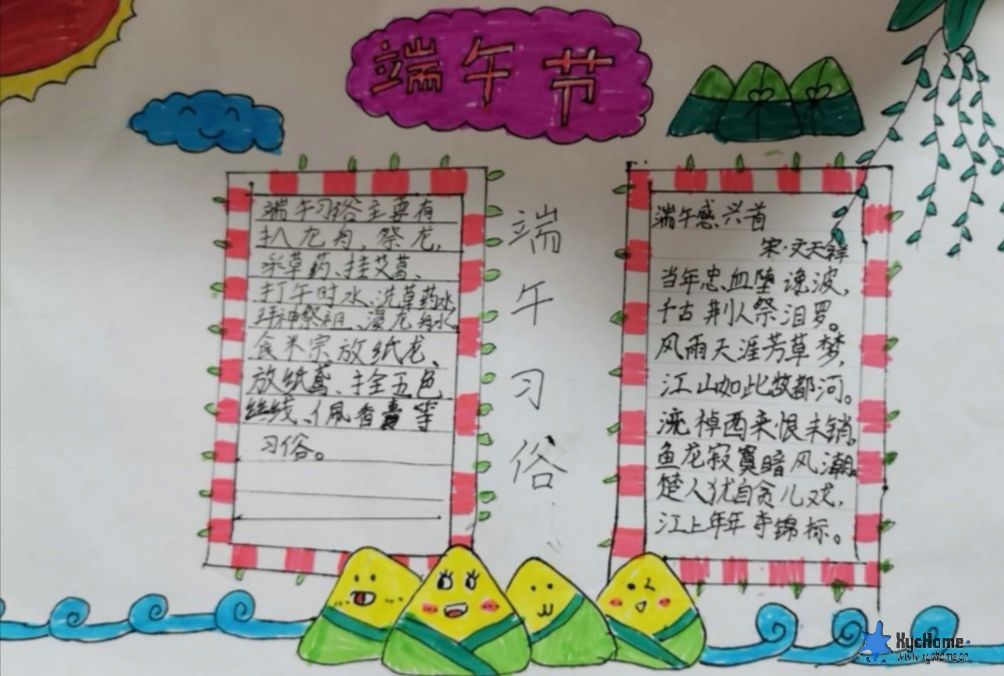 端午节
端午习俗主要有
扒龙舟、祭龙、
采草药、挂艾草、
打午时水、洗草药水、
拜神祭祖、浸龙舟水、
食米宗放纸龙、
放纸鸢、拴五色
丝线、佩香囊等
习俗。
端
午
习
俗
端午感兴首
宋·文天祥
当年忠血堕谗波，
千古荆人祭汨罗。
风雨天涯芳草梦，
江山如此故都河。
流棹西来恨未销，
鱼龙寂寞暗风潮。
楚人犹自贪儿戏，
江上年年夺锦标。
XycHome
www.xychome.cn